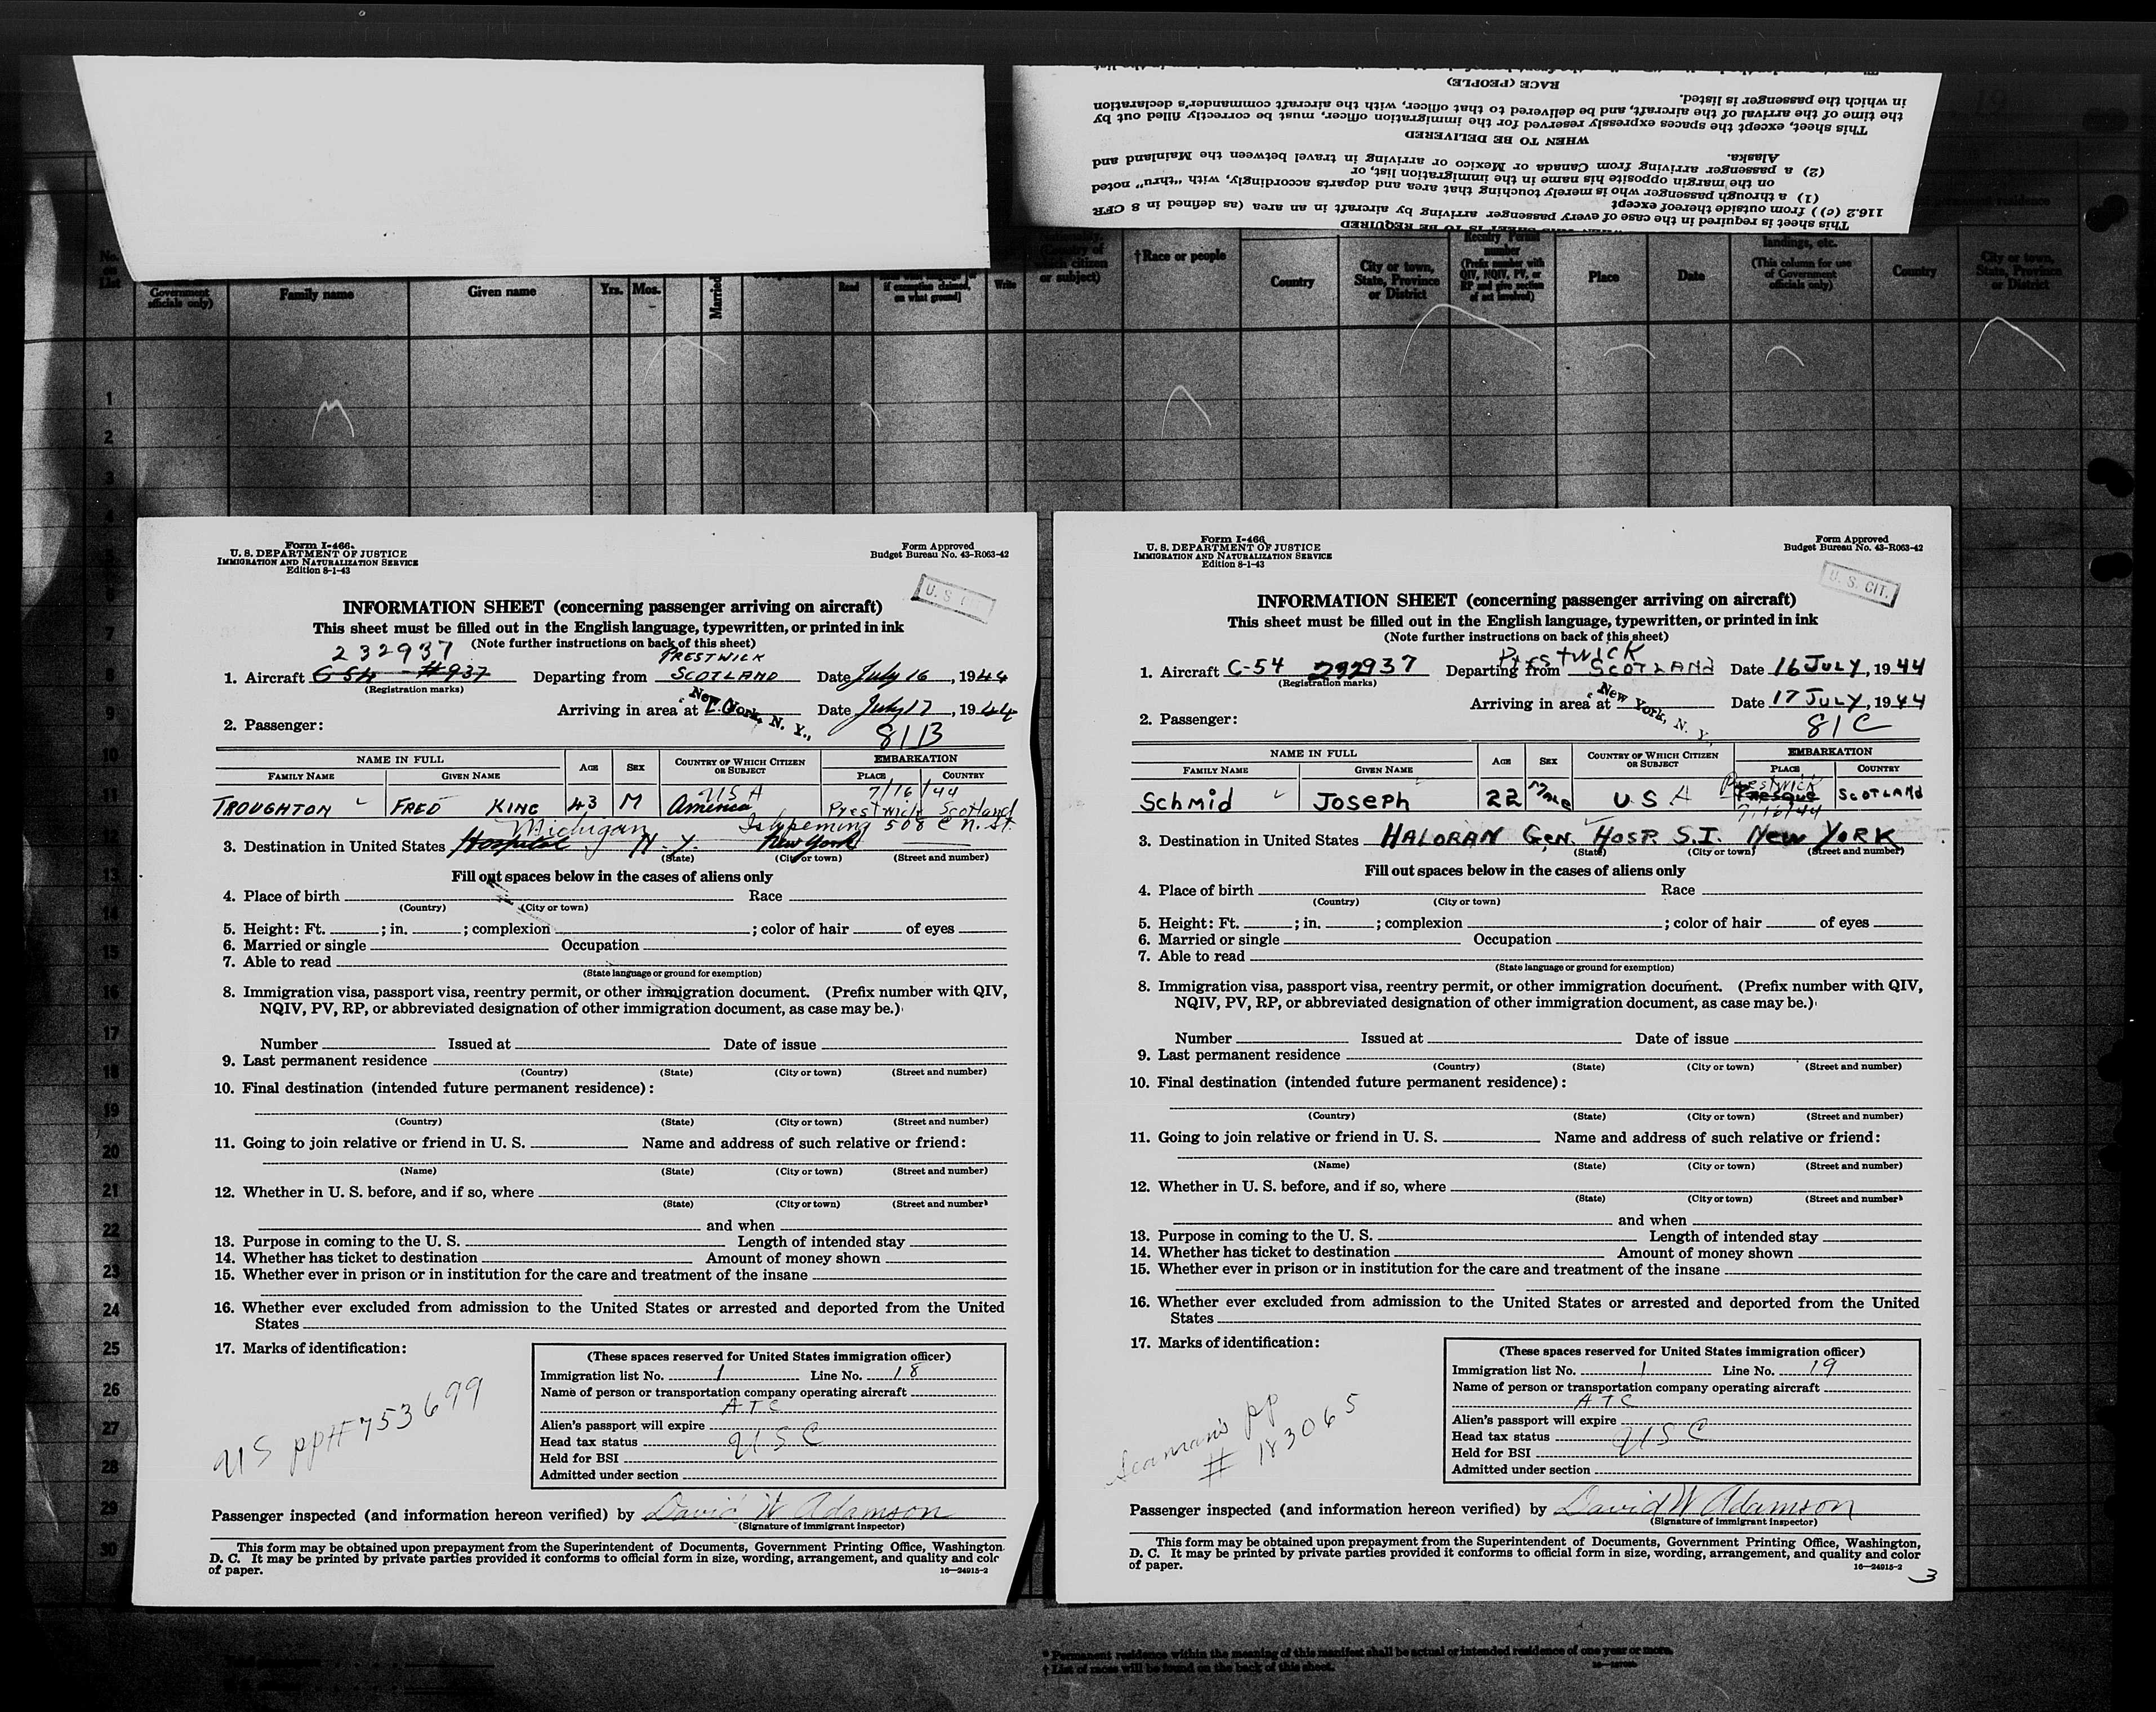 RACE (PEOPLE)
in which the passenger is listed.
the time of the arrival of the aircraft, and be delivered to that officer, with the aircraft commander's declaration
This sheet, except the spaces expressly reserved for the immigration officer, must be correctly filled out by
WHEN TO BE DELIVERED
Alaska.
(2) a passenger arriving from Canada or Mexico or arriving in travel between the Mainland and
on the margin opposite his name in the immigration list, or
(1) a through passenger who is merely touching that area and departs accordingly, with "thru" noted
116.2 (c) ) from outside thereof except
This sheet is required in the case of every passenger arriving by aircraft in an area (as defined in 8 CFR
No. on List
Government officials only)
Family name
Given name
Yrs. Mos.
Married
Read
if exemption claimed, on what ground]
Write
(Country of which citizen or subject)
†Race or people
Country
City or town, State, Province or District
Reentry Permit number (Prefix number with QIV, NQIV, PV, or RP and give section of act involved)
Place
Date
landings, etc. (This column for use of Government officials only)
Country
City or town, State, Province or District
1
2
3
4
7
8
9
10
11
12
13
14
15
16
17
18
19
20
21
22
23
24
25
26
27
28
29
30
Form I-466.
U. S. DEPARTMENT OF JUSTICE
IMMIGRATION AND NATURALIZATION SERVICE
Edition 8-1-43
Form Approved
Budget Bureau No. 43-R063-42
U. S.
INFORMATION SHEET (concerning passenger arriving on aircraft)
This sheet must be filled out in the English language, typewritten, or printed in ink
(Note further instructions on back of this sheet)
232937 PRESTWICK
1. Aircraft C-54 - #937 Departing from SCOTLAND Date July 16, 1944
(Registration marks)
Arriving in area at New York, N. Y., Date July 17, 1944
2. Passenger: 81B
NAME IN FULL AGE SEX COUNTRY OF WHICH CITIZEN OR SUBJECT EMBARKATION
FAMILY NAME GIVEN NAME PLACE COUNTRY
USA 7/16/44
TROUGHTON FRED KING 43 M America Prestwick Scotland
Michigan Ishpeming 508 E N. St.
3. Destination in United States Hospital N. Y. New York
(State) (City or town) (Street and number)
Fill out spaces below in the cases of aliens only
4. Place of birth Race
(Country) (City or town)
5. Height: Ft. ; in. ; complexion ; color of hair of eyes
6. Married or single Occupation
7. Able to read
(State language or ground for exemption)
8. Immigration visa, passport visa, reentry permit, or other immigration document. (Prefix number with QIV,
NQIV, PV, RP, or abbreviated designation of other immigration document, as case may be.)
Number Issued at Date of issue
9. Last permanent residence
(Country) (State) (City or town) (Street and number)
10. Final destination (intended future permanent residence):
(Country) (State) (City or town) (Street and number)
11. Going to join relative or friend in U. S. Name and address of such relative or friend:
(Name) (State) (City or town) (Street and number)
12. Whether in U. S. before, and if so, where
(State) (City or town) (Street and number)
and when
13. Purpose in coming to the U. S. Length of intended stay
14. Whether has ticket to destination Amount of money shown
15. Whether ever in prison or in institution for the care and treatment of the insane
16. Whether ever excluded from admission to the United States or arrested and deported from the United
States
17. Marks of identification:
US pp# 753699
(These spaces reserved for United States immigration officer)
Immigration list No. 1 Line No. 18
Name of person or transportation company operating aircraft
ATC
Alien's passport will expire
Head tax status USC
Held for BSI
Admitted under section
Passenger inspected (and information hereon verified) by David W Adamson
(Signature of immigrant inspector)
This form may be obtained upon prepayment from the Superintendent of Documents, Government Printing Office, Washington
D. C. It may be printed by private parties provided it conforms to official form in size, wording, arrangement, and quality and colr
of paper.
16—24915-2
Form I-466
U. S. DEPARTMENT OF JUSTICE
IMMIGRATION AND NATURALIZATION SERVICE
Edition 8-1-43
Form Approved
Budget Bureau No. 43-R063-42
U. S. CIT.
INFORMATION SHEET (concerning passenger arriving on aircraft)
This sheet must be filled out in the English language, typewritten, or printed in ink
(Note further instructions on back of this sheet)
Prestwick
1. Aircraft C-54 232937 Departing from SCOTLAND Date 16 JULY, 1944
(Registration marks)
Arriving in area at New York, N. Y., Date 17 JULY, 1944
2. Passenger: 81C
NAME IN FULL AGE SEX COUNTRY OF WHICH CITIZEN OR SUBJECT EMBARKATION
FAMILY NAME GIVEN NAME PLACE COUNTRY
Prestwick
Schmid JOSEPH 22 Male USA Presque SCOTLAND
7/16/44
3. Destination in United States HALORAN GEN. HOSP. S.I. NEW YORK
(State) (City or town) (Street and number)
Fill out spaces below in the cases of aliens only
4. Place of birth Race
(Country) (City or town)
5. Height: Ft. ; in. ; complexion ; color of hair of eyes
6. Married or single Occupation
7. Able to read
(State language or ground for exemption)
8. Immigration visa, passport visa, reentry permit, or other immigration document. (Prefix number with QIV,
NQIV, PV, RP, or abbreviated designation of other immigration document, as case may be.)
Number Issued at Date of issue
9. Last permanent residence
(Country) (State) (City or town) (Street and number)
10. Final destination (intended future permanent residence):
(Country) (State) (City or town) (Street and number)
11. Going to join relative or friend in U. S. Name and address of such relative or friend:
(Name) (State) (City or town) (Street and number)
12. Whether in U. S. before, and if so, where
(State) (City or town) (Street and number)
and when
13. Purpose in coming to the U. S. Length of intended stay
14. Whether has ticket to destination Amount of money shown
15. Whether ever in prison or in institution for the care and treatment of the insane
16. Whether ever excluded from admission to the United States or arrested and deported from the United
States
17. Marks of identification:
Seamans PP
# 183065
(These spaces reserved for United States immigration officer)
Immigration list No. 1 Line No. 19
Name of person or transportation company operating aircraft
ATC
Alien's passport will expire
Head tax status USC
Held for BSI
Admitted under section
Passenger inspected (and information hereon verified) by David W Adamson
(Signature of immigrant inspector)
This form may be obtained upon prepayment from the Superintendent of Documents, Government Printing Office, Washington,
D. C. It may be printed by private parties provided it conforms to official form in size, wording, arrangement, and quality and color
of paper.
16—24915-2
3
* Permanent residence within the meaning of this manifest shall be actual or intended residence of one year or more.
† List of races will be found on the back of this sheet.